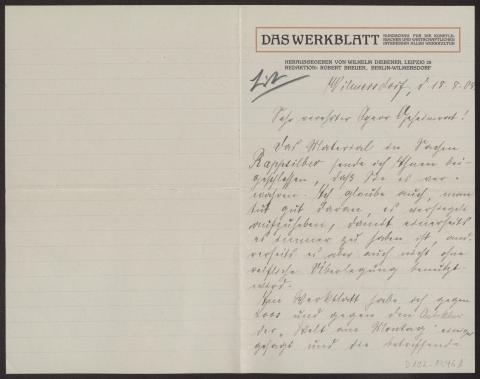 DAS WERKBLATT
RUNDSCHAU FÜR DIE KÜNSTLE-
RISCHEN UND WIRTSCHAFTLICHEN
INTERESSEN ALLER WERKKULTUR
HERAUSGEGEBEN VON WILHELM DIEBENER, LEIPZIG 21
REDAKTION: ROBERT BREUER, BERLIN-WILMERSDORF
Wilmersdorf, d 18.8.09
Sehr verehrter Herr Geheimrat!
Das Material in Sachen
Rappsilber sende ich Ihnen bei
geschlossen, daß Sie es ver-
wahren. Ich glaube auch, man
tut gut daran, es versiegelt
aufzuheben, damit einerseits
es immer zu haben ist, and-
rerseits es aber auch nicht ohne
reifliche Überlegung benutzt
wird.
Im Werkblatt habe ich gegen
Loos und gegen den
der „Welt am Montag" einiges
gesagt und die betreffende